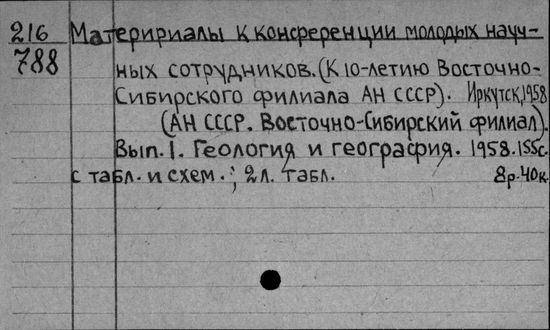 216 Материриалы к конференции молодых науч-
788 ных сотрудников. (К 10-летию Восточно-
Сибирского филиала АН СССР). Иркутск, 1958
(АН СССР. Восточно-Сибирский филиал).
Вып. 1. Геология и география. 1958. 155с.
с табл. и схем.; 2 л. табл. 8р. 40к.